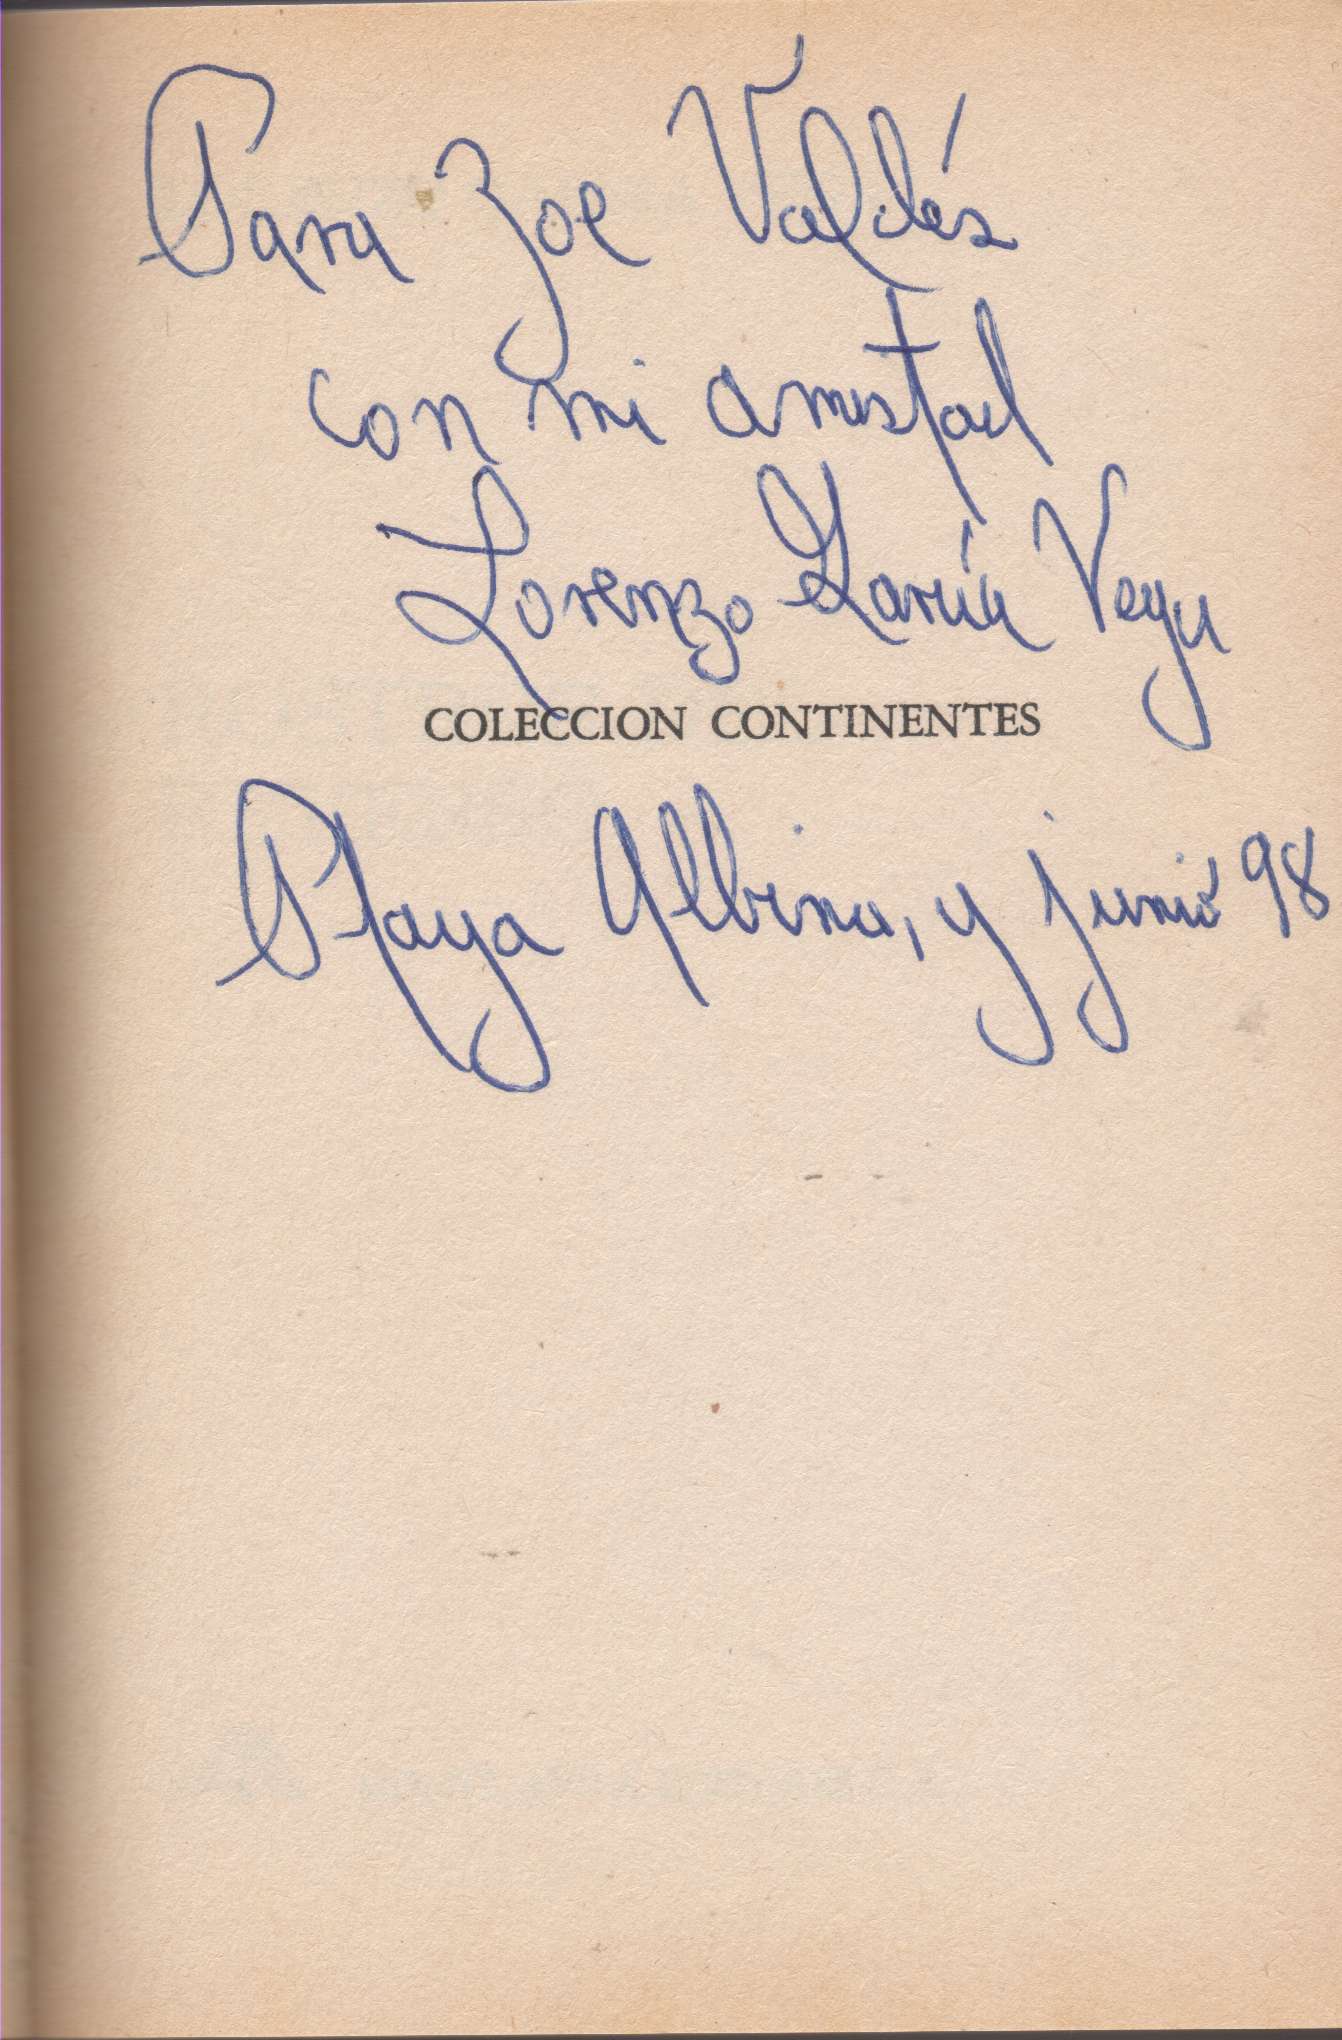 Para Zoe Valdés
con mi amistad
Lorenzo García Vega
COLECCION CONTINENTES
Playa Albina, y junio 98